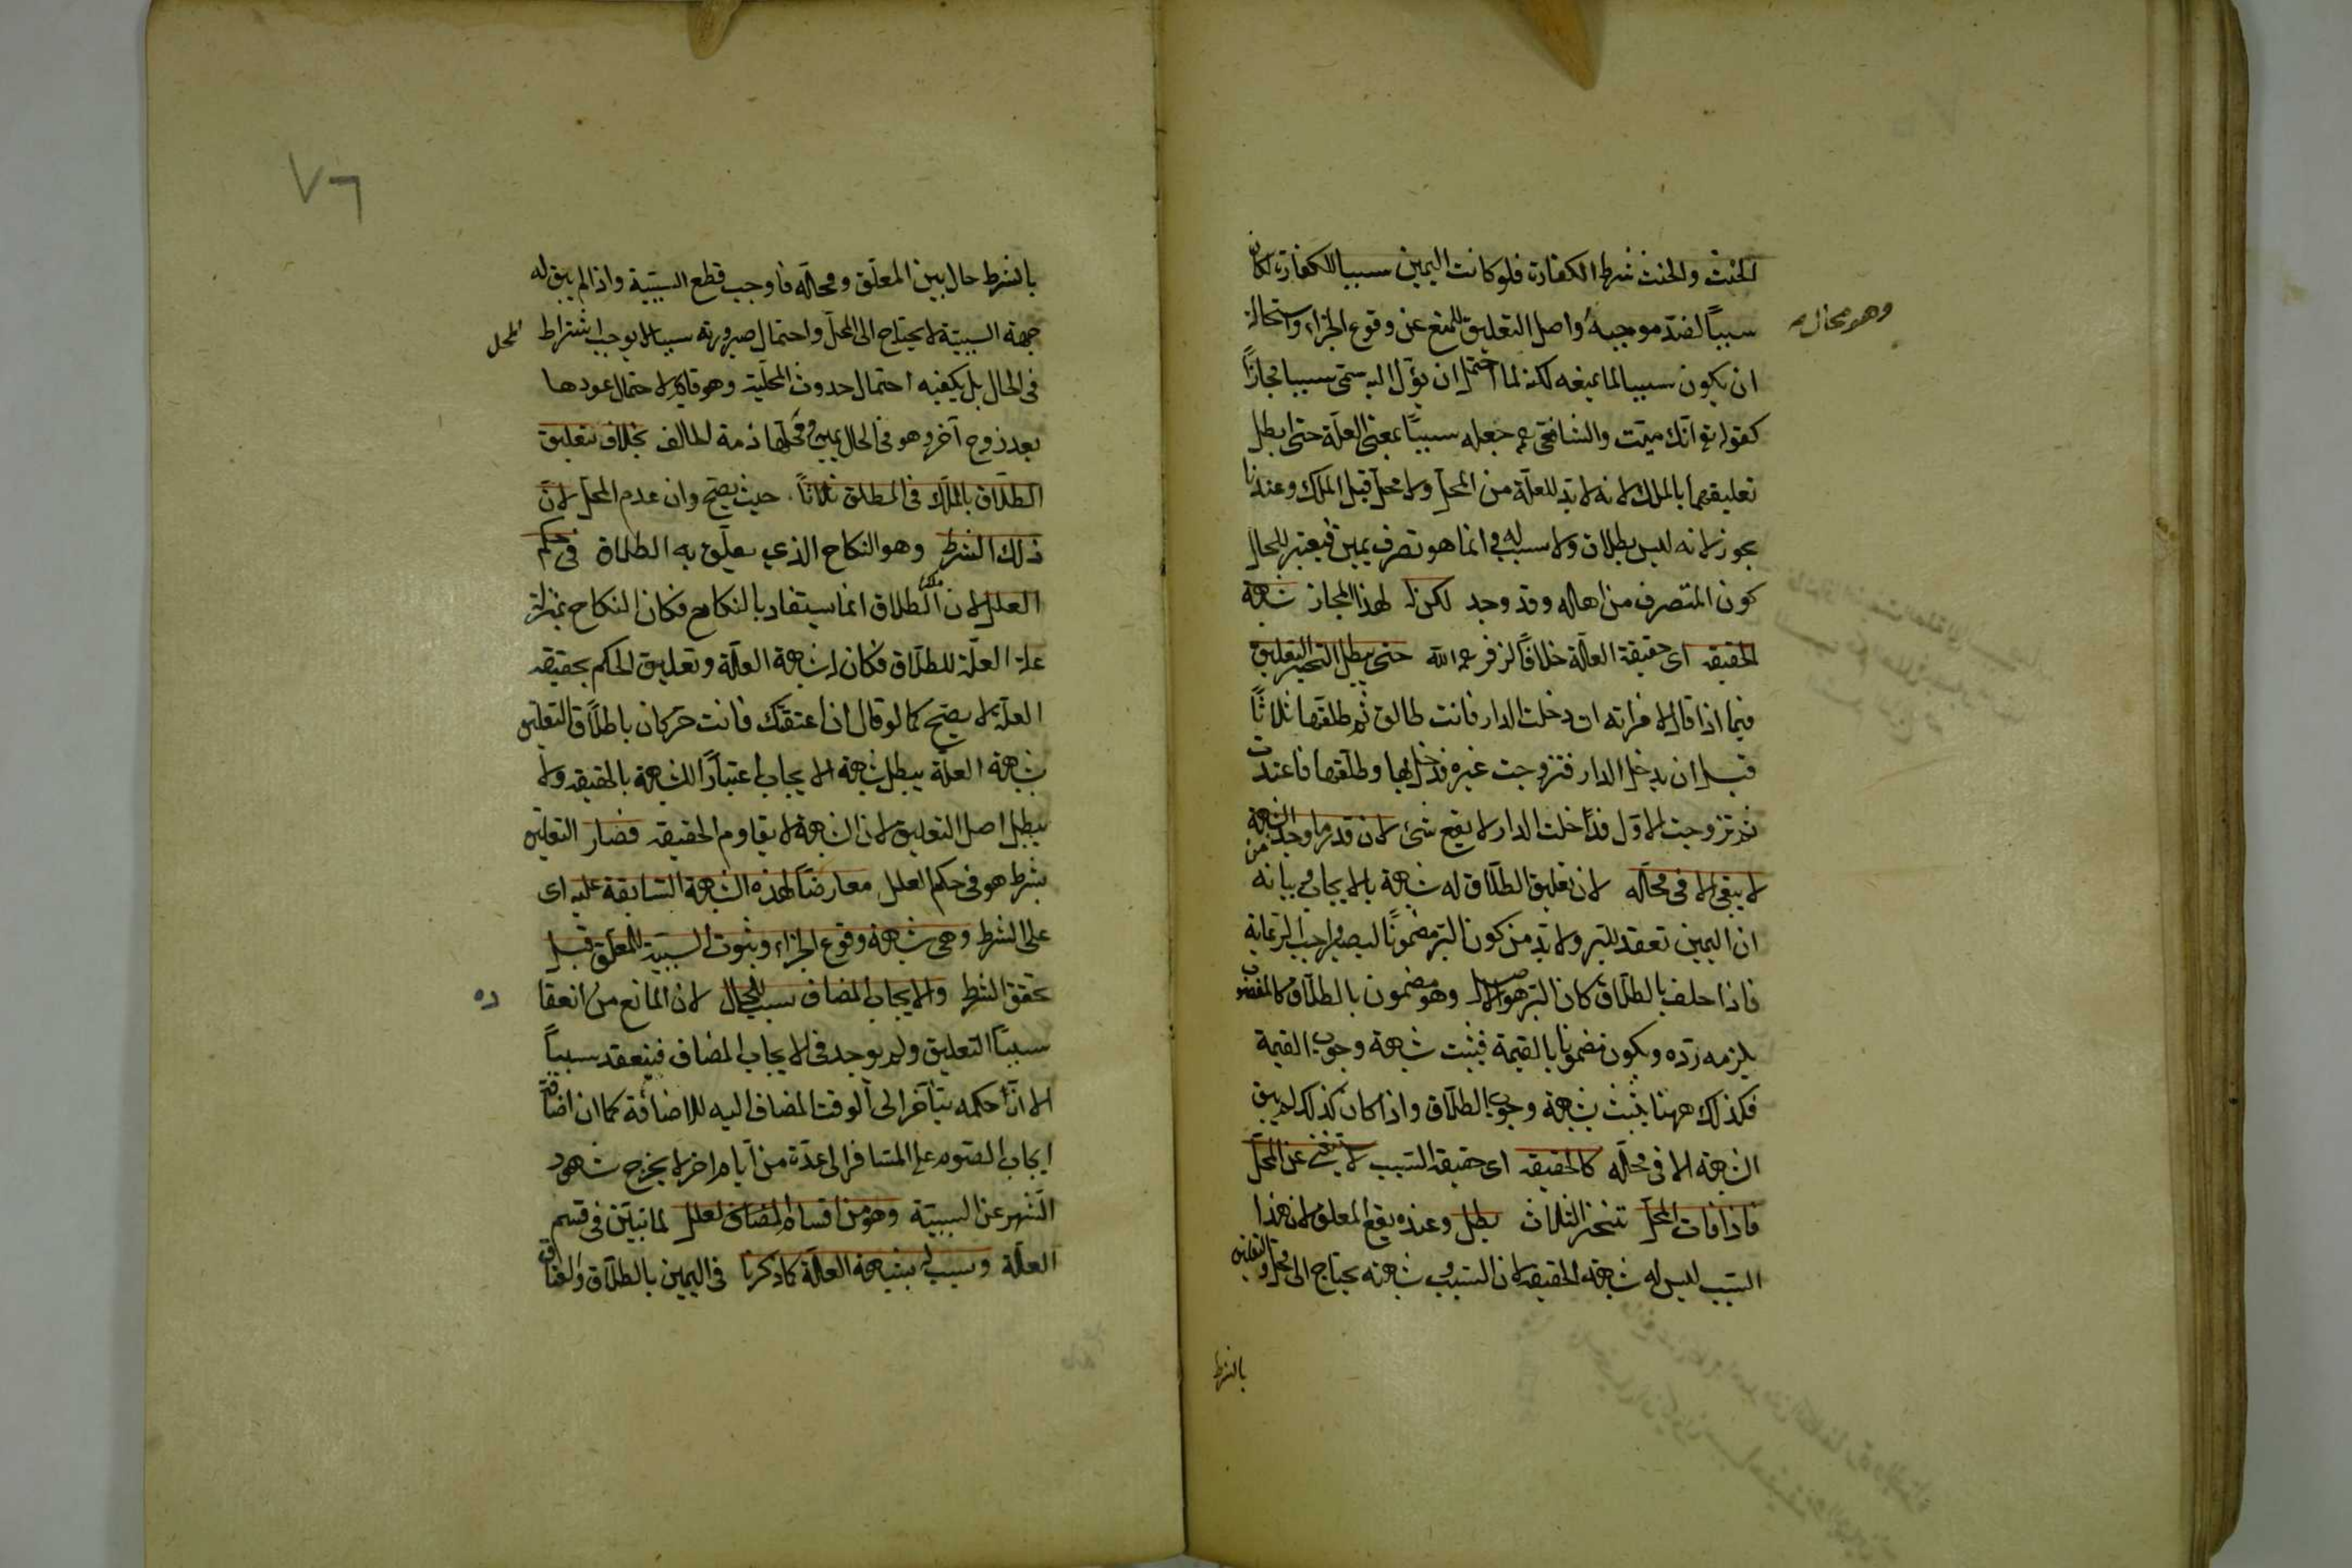 الحنث والحنث شرط الكفارة فلو كانت اليمين سببا للكفارة لكان
سببًا لضدّ موجبه واصل التعليق للمنع عن وقوع الجزاء واستحالة
وهو محال
ان يكون سببا لما يمنعه لكنه لما احتمل ان يؤل اليه سمّى سببا مجازًا
كقوله تع انّك ميّت والشافعى جعله سببًا بمعنى العلّة حتى ابطل
تعليقهما بالملك لانه لا بد للعلّة من المحلّ ولا محلّ قبل الملك وعندنا
يجوز لانه ليس بطلاق ولا سبب له انما هو تصرف يمين فيعتبر للحال
كون المتصرف من اهله وقد وجد لكن لهذا المجاز شبهة
الحقيقة اى حقيقة العلّة خلافًا لزفر حتى يبطل التنجيز التعليق
فيما اذا قال لامراته ان دخلت الدار فانت طالق ثم طلقها ثلاثًا
قبل ان يدخل الدار فتزوجت غيره فدخل بها وطلّقها فاعتدت
ثم تزوجت الاوّل فدخلت الدار لا يقع شئ لان قدر ما وجد من الشبهة
لا يبقى الا فى محلّه لان تعليق الطلاق له شبهة بالايجاب بيانه
ان اليمين تعقد للبر ولا بد من كون البر مضمونًا ليصير واجب الرعاية
فاذا حلف بالطلاق كان البر هو الاصل وهو مضمون بالطلاق كالمغصوب
يلزمه ردّه ويكون مضمونا بالقيمة فيثبت شبهة وجوب القيمة
فكذلك ههنا يثبت شبهة وجوب الطلاق واذا كان كذلك لم يبق
الشبهة الا فى محلّه كالحقيقة اى حقيقة السبب لا يستغنى عن المحلّ
فاذا فات المحلّ بتنجيز الثلاث بطل وعنده يقع المعلق لان هذا
السبب ليس له شبهة الحقيقة لان السبب وشبهته يحتاج الى محل والتعليق
بالشرط
٧٦
بالشرط حال بين المعلّق ومحلّه فاوجب قطع السببيّة واذا لم يبق له
جهة السببيّة لا يحتاج الى المحلّ واحتمال صيرورته سببا لا يوجب اشتراط المحل
فى الحال بل يكفيه احتمال حدوث المحليّة وهو قائم لاحتمال عودها
بعد زوج آخر وهو فى الحال يمين ومحلّها ذمة الحالف بخلاف تعليق
الطلاق بالملك فى المطلق ثلاثًا حيث يصحّ وان عدم المحلّ لانّ
ذلك الشرط وهو النكاح الذي يعلّق به الطلاق فى حكم
العلل لان ملك الطلاق انما يستفاد بالنكاح فكان النكاح بمنزلة
علة العلّة للطلاق فكان له شبهة العلّة وتعليق الحكم بحقيقة
العلّة لا يصحّ كما لو قال ان اعتقتك فانت حرّ كان باطلًا والتعليق
بشبهة العلّة يبطل شبهة الايجاب اعتبارًا للشبهة بالحقيقة ولا
يبطل اصل التعليق لان الشبهة لا يقاوم الحقيقة فصار التعليق
بشرط هو فى حكم العلل معارضًا لهذه الشبهة السابقة عليه اى
على الشرط وهى شبهة وقوع الجزاء وثبوت السببيّة للمعلّق قبل
تحقق الشرط والايجاب المضاف سبب للحال لان المانع من انعقاده
سببًا التعليق ولم يوجد فى الايجاب المضاف فينعقد سببًا
الا انّ حكمه يتأخر الى الوقت المضاف اليه للاضافة كما ان اضافة
ايجاب الصّوم على المسافر الى عدّة من ايام اخر لا يخرج شهود
الشّهر عن السببيّة وهو من اقسام المضاف لعلل لما نبيّن فى قسم
العلّة وسبب له شبهة العلّة كما ذكرنا فى اليمين بالطلاق والعتاق